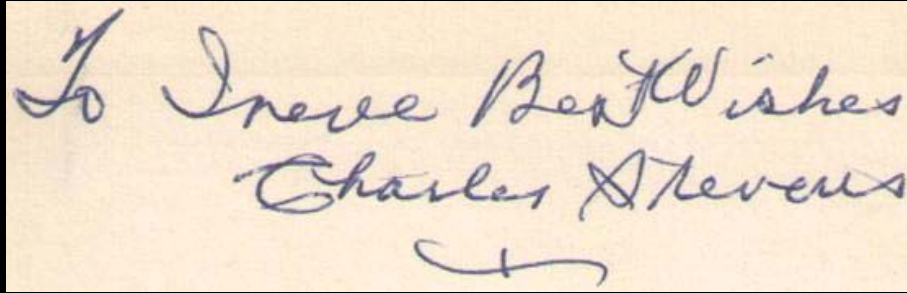 To Irene Best Wishes
Charles Stevens